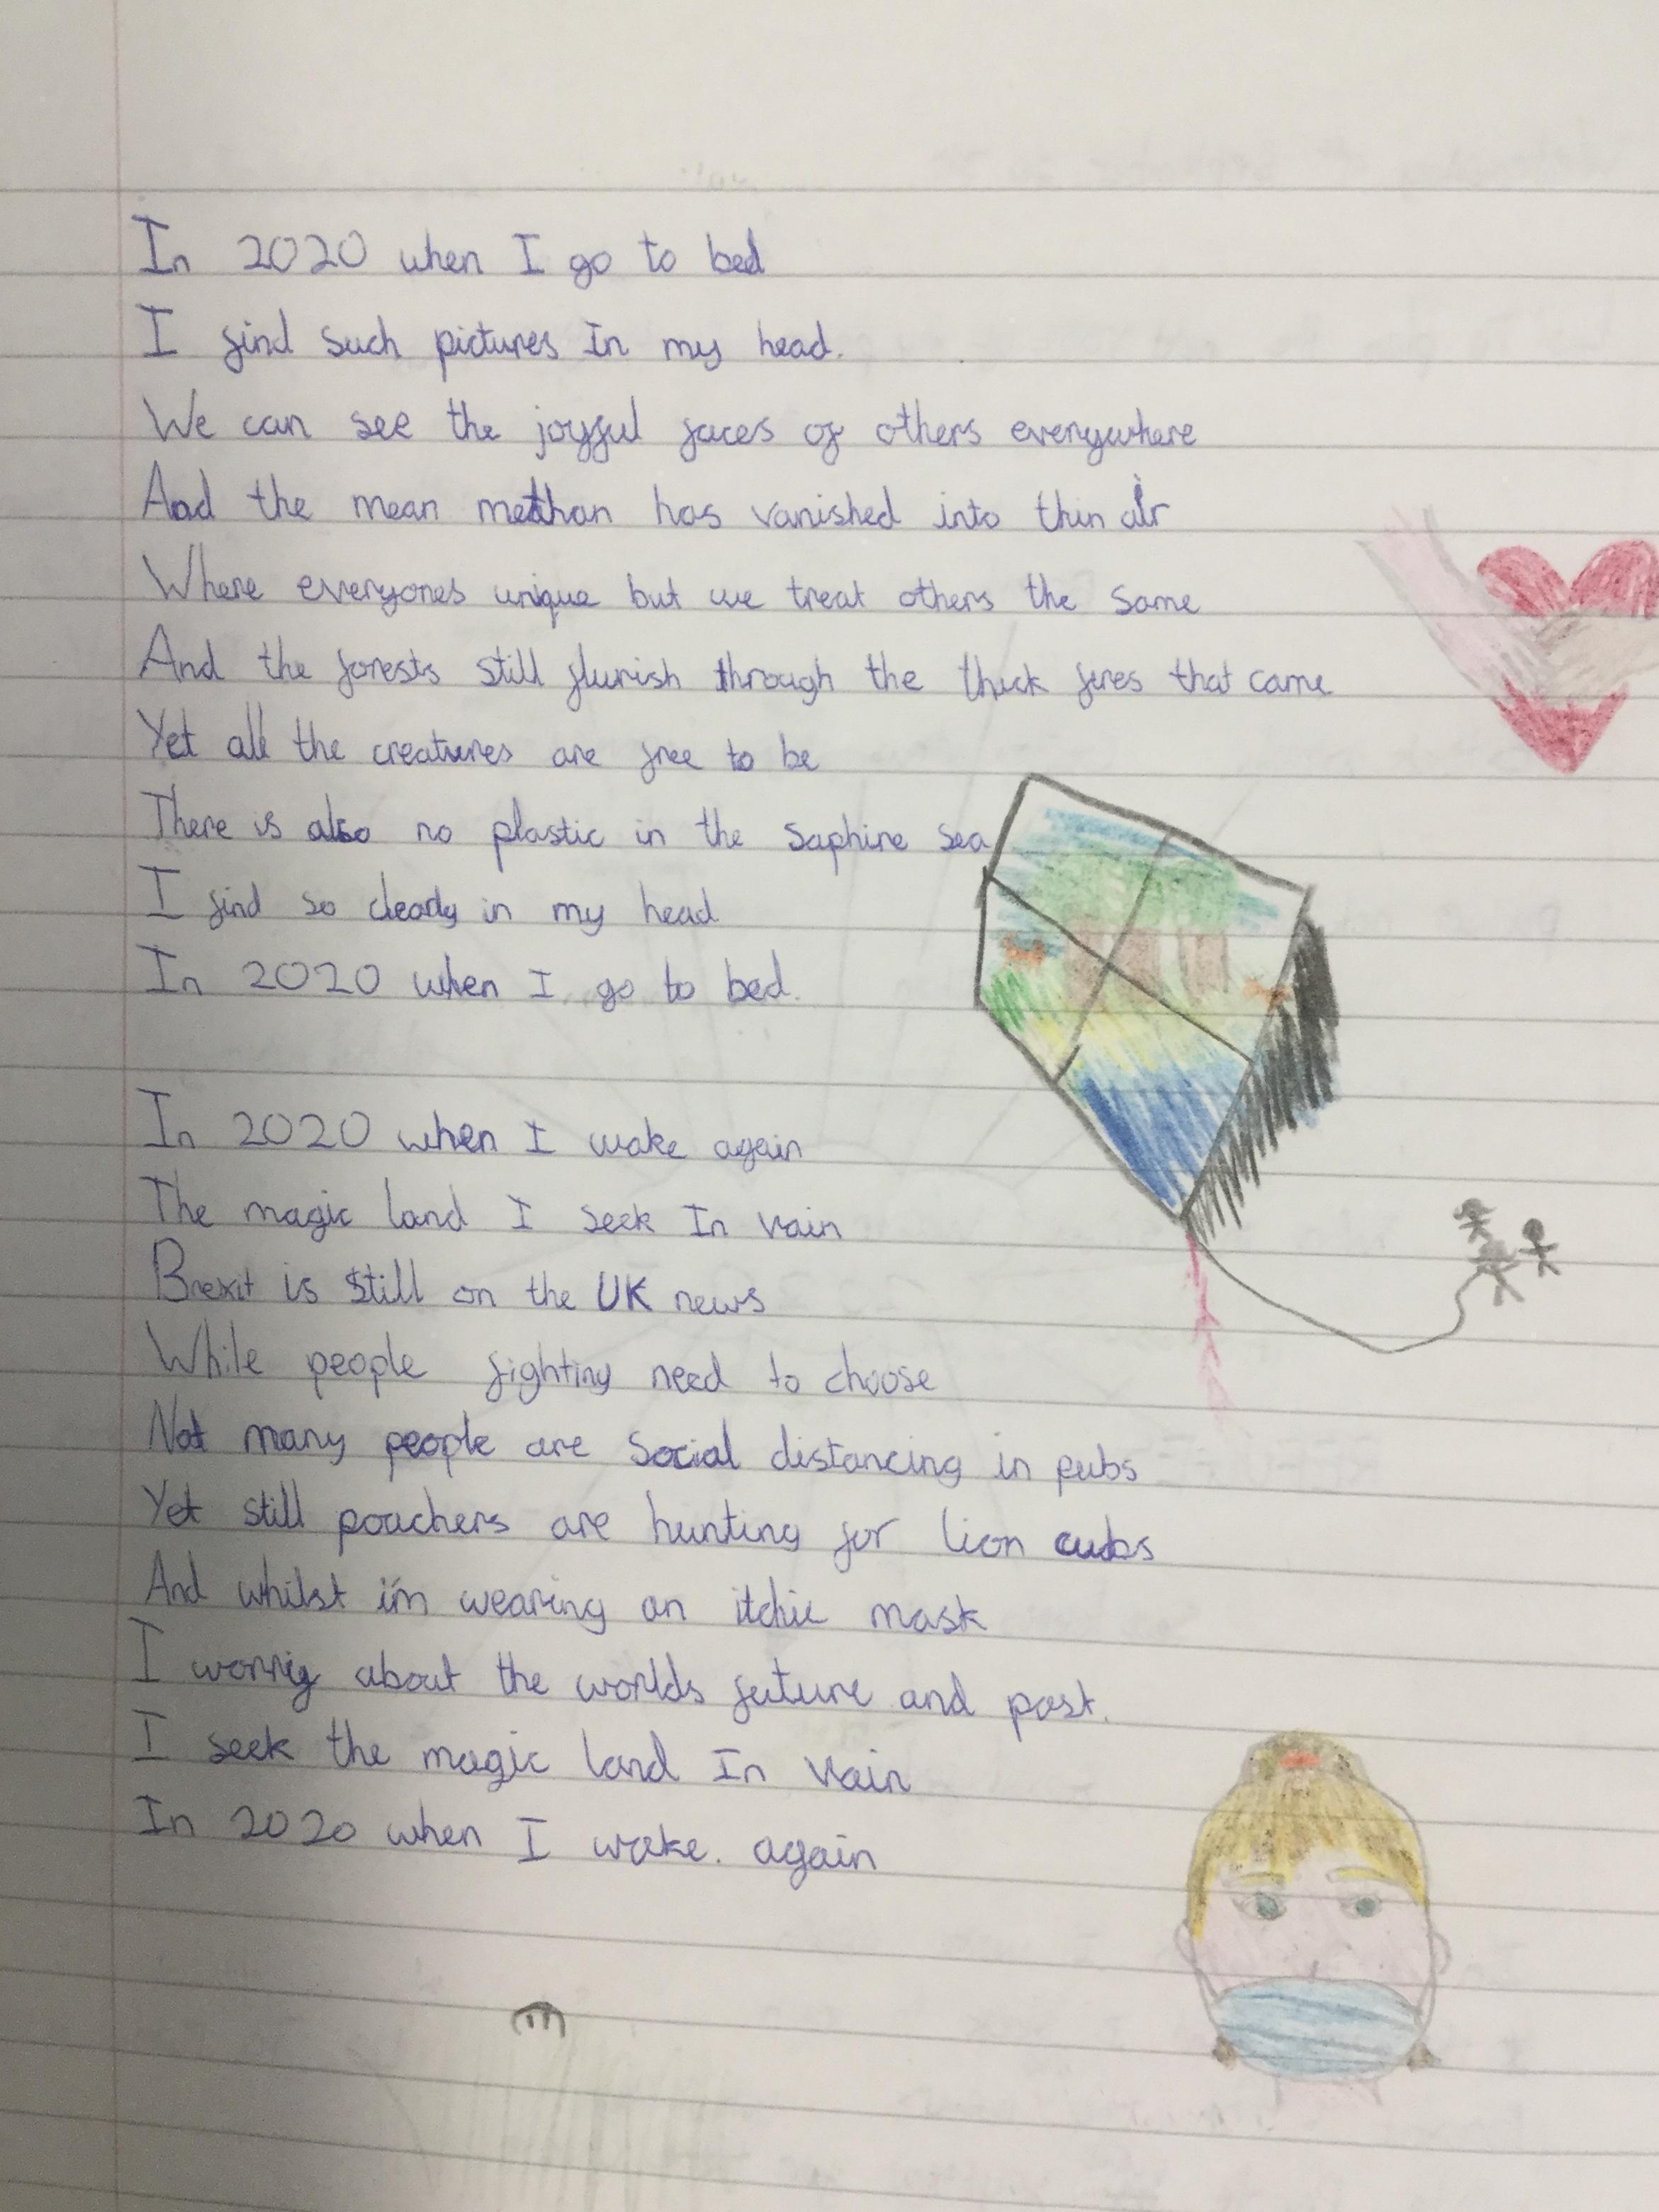 In 2020 when I go to bed
I find such pictures In my head.
We can see the joyful faces of others everywhere
And the mean methan has vanished into thin air
Where everyones unique but we treat others the same
And the forests still flurish through the thick fires that came
Yet all the creatures are free to be
There is also no plastic in the saphire sea
I find so clearly in my head
In 2020 when I go to bed.
In 2020 when I wake again
The magic land I seek In vain
Brexit is still on the UK news
While people fighting need to choose
Not many people are social distancing in pubs
Yet still poachers are hunting for lion cubs
And whilst i'm wearing an itchie mask
I worry about the worlds future and past.
I seek the magic land In vain
In 2020 when I wake. again